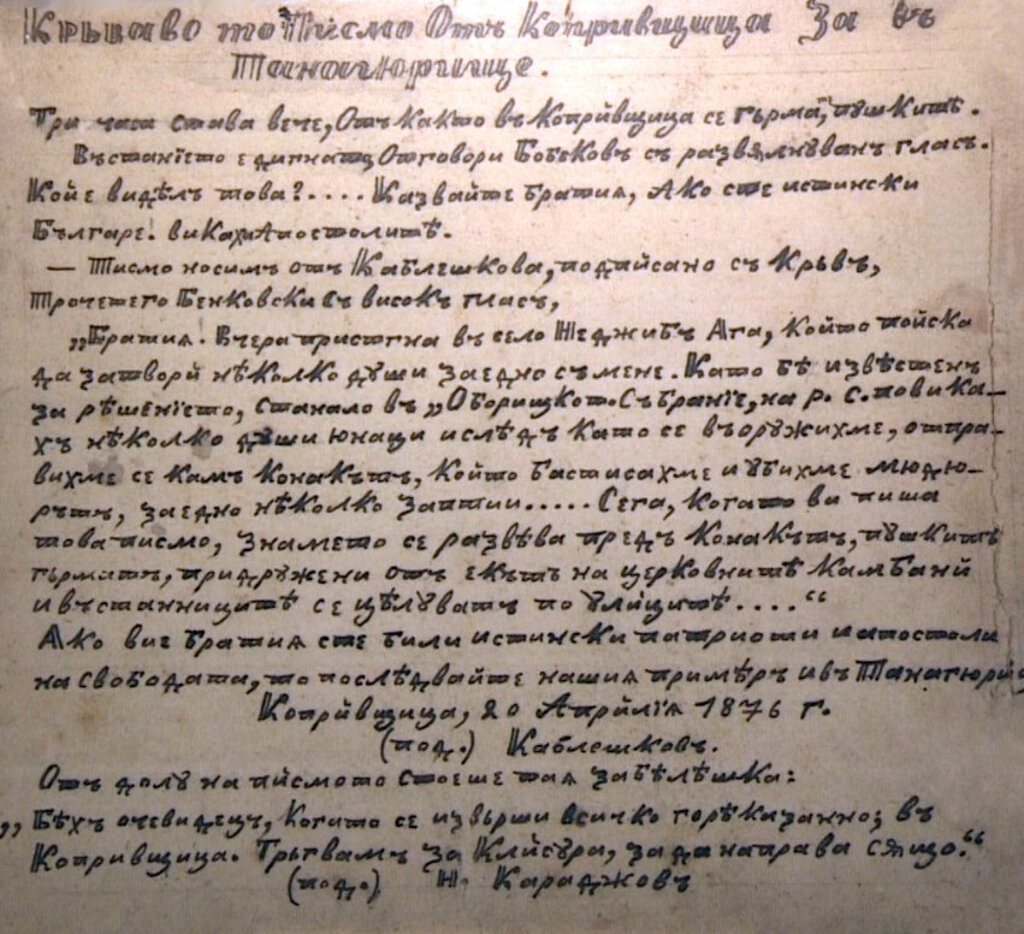 Кръваво то Писмо Отъ Копривщица За въ
Панагюрище.
Три часа става вече, Отъ както въ Копривщица се гърмѣ, пушкитѣ.
Въстанието е дигнато, Отговори Бобековъ съ развълнуванъ гласъ.
Кой е видѣлъ това?.... Казвайте братия, Ако сте истински
Българе. викаха Апостолитѣ.
— Писмо носимъ отъ Каблешкова, подписано съ Кръвь,
Прочете го Бенковски въ високъ гласъ,
„Братия. Вчера пристигна въ село Неджибъ Ага, който поиска
да затвори нѣколко души заедно съ мене. Като бѣ извѣстенъ
за рѣшението, станало въ „Оборищкото Събрание, на р. с. повика-
хъ нѣколко души юнаци и слѣдъ като се въоружихме, отпра-
вихме се камъ Конакътъ, който бастисахме и убихме мюдю-
рътъ, заедно нѣколко заптии..... Сега, когато ви пиша
това писмо, знамето се развѣва предъ Конакътъ, пушкитѣ
гърматъ, придружени отъ екътъ на церковнитѣ камбани
и въстанницитѣ се цѣлуватъ по улицитѣ...."
Ако вие братия сте били истински патриоти и апостоли
на свободата, то послѣдвайте нашия примѣръ и въ Панагюри
Копривщица, 20 Априлия 1876 г.
(под.) Каблешковъ.
Отъ долу на писмото стоеше тая забѣлѣшка:
„Бѣхъ очевидецъ, когато се извърши всичко горѣказанно; въ
Копривщица. Тръгвамъ за Клисура, за да направа сѫщо."
(под.) Н. Караджовъ